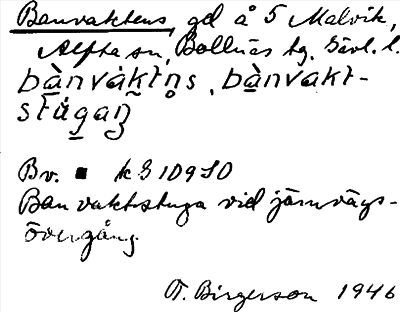 Banvaktens, gd å 5 Malvik,
Alfta sn, Bollnäs tg. Gävl. l.
bànvàktn̥s, bànvakt-
stúgaŋ
Bv. ■ k G 10950
Banvaktstuga vid järnvägs-
övergång.
T. Birgerson 1946